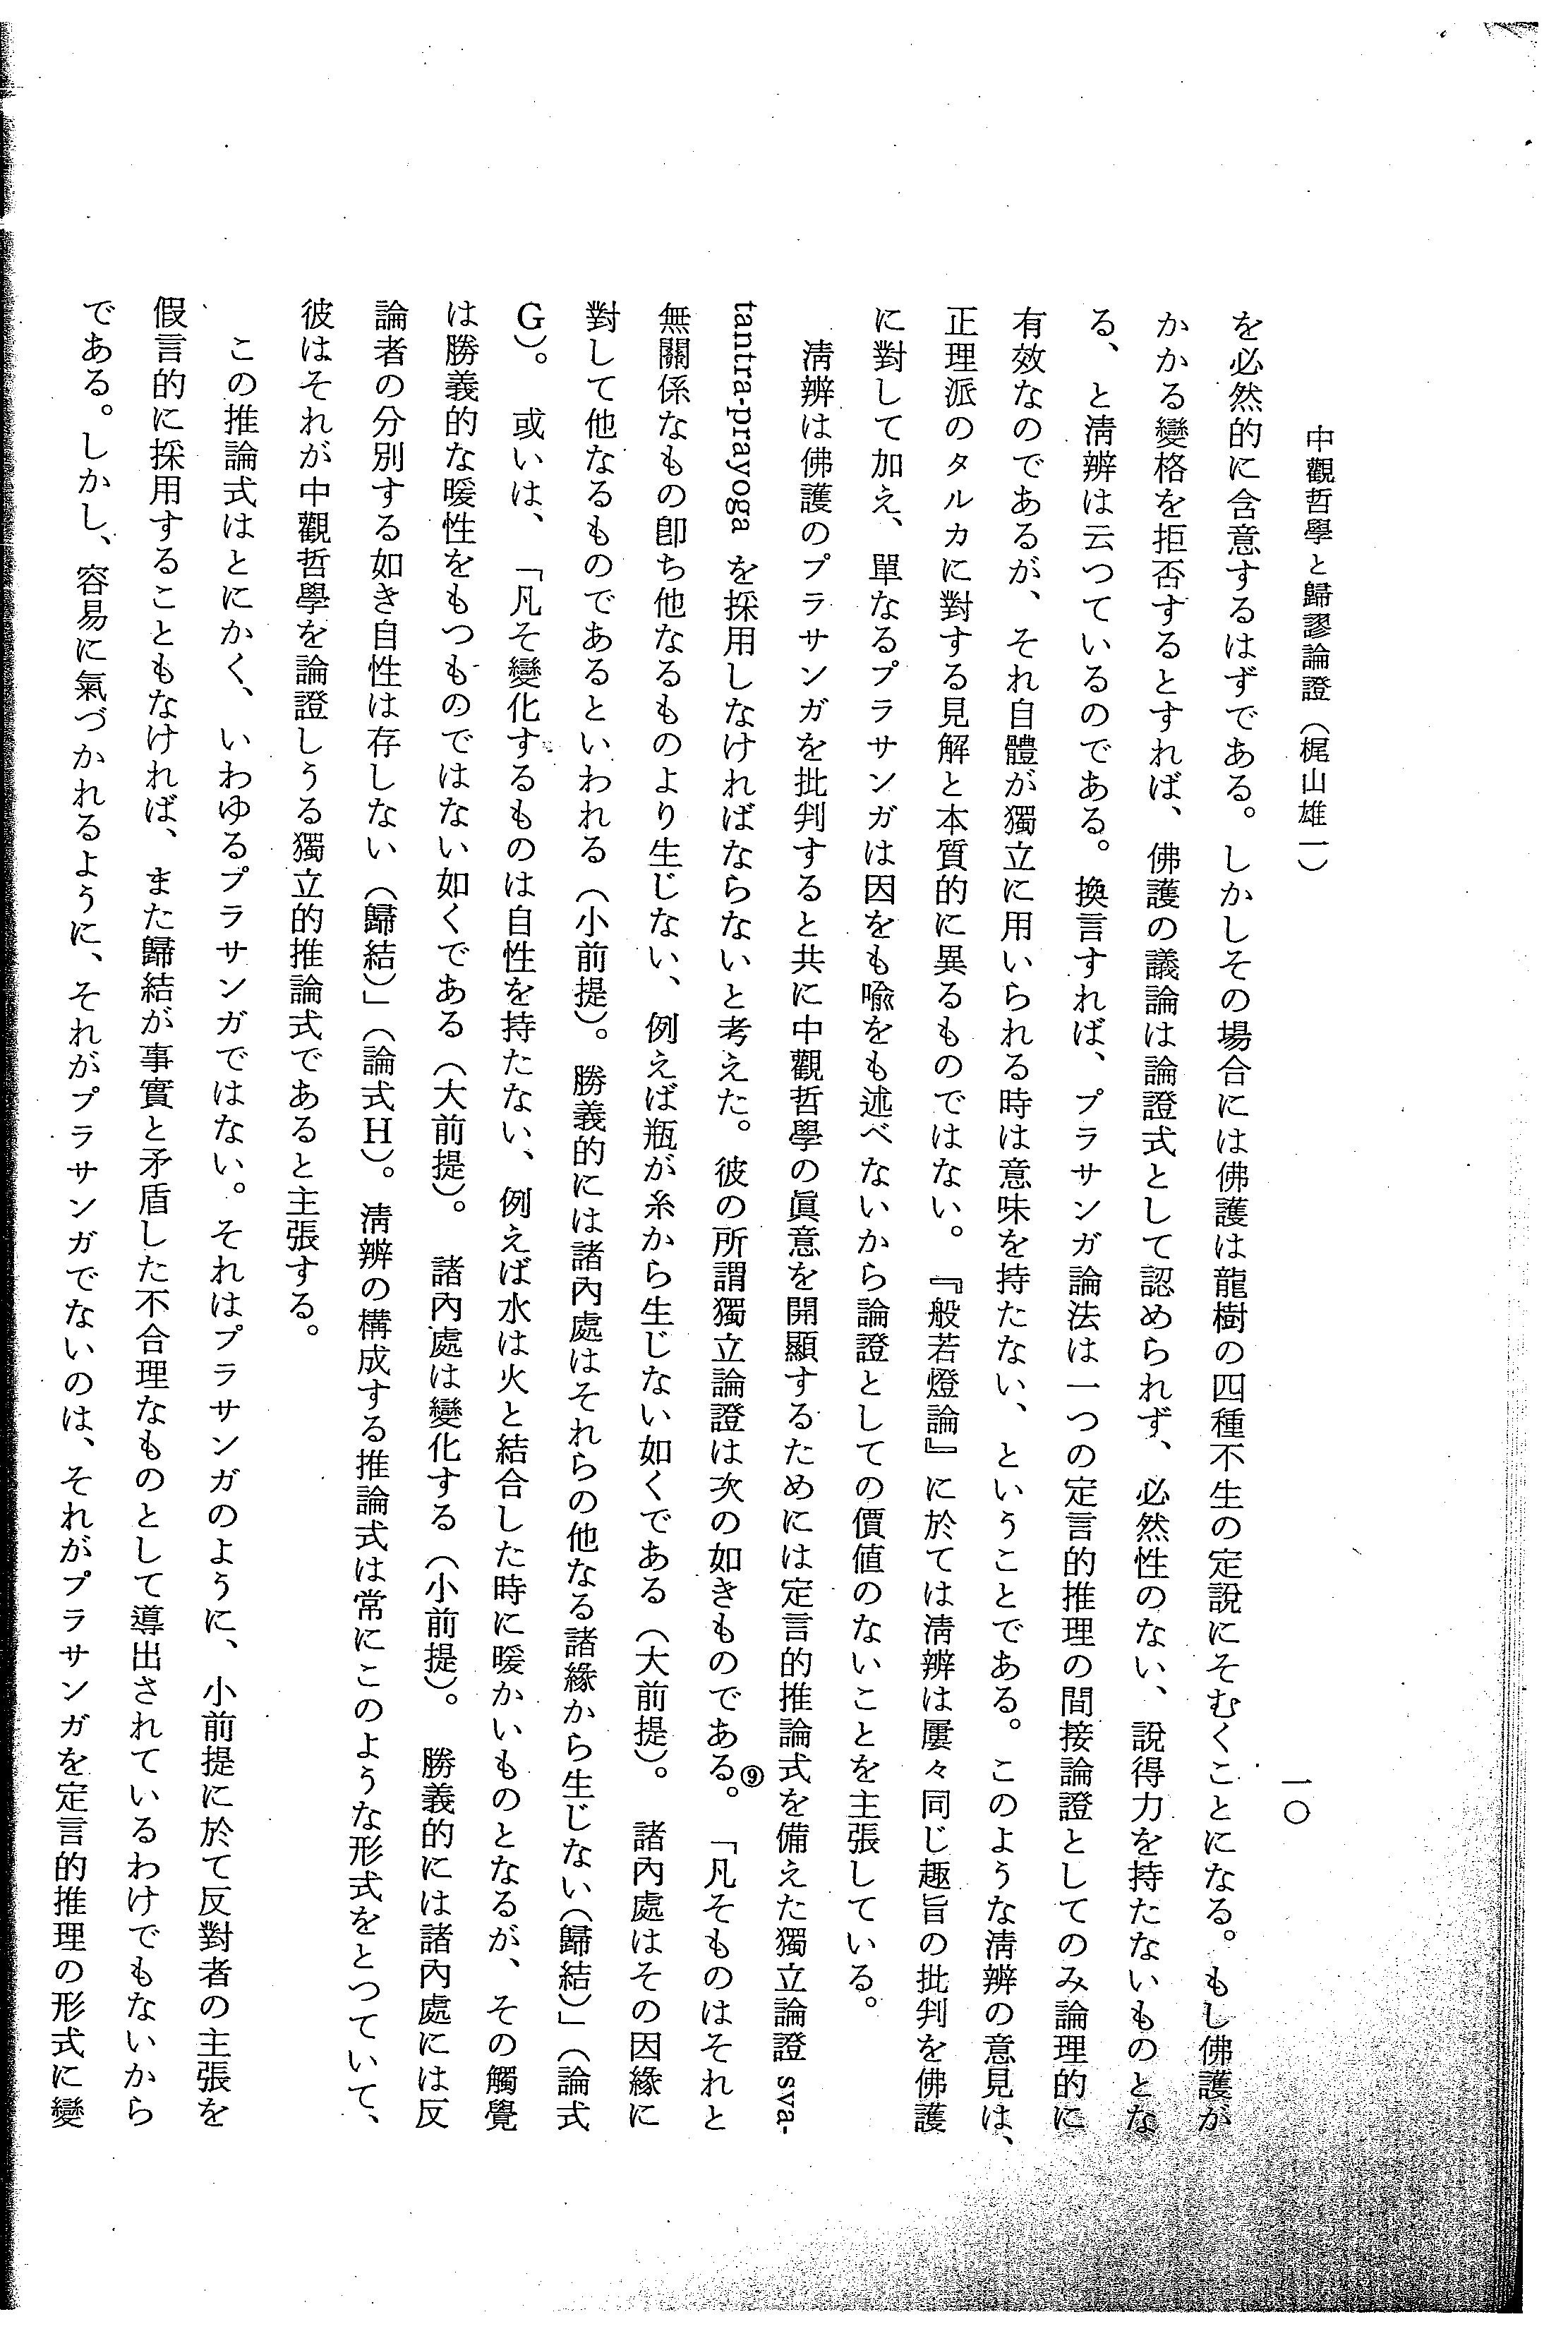 中觀哲學と歸謬論證（梶山雄一）
一〇
を必然的に含意するはずである。しかしその場合には佛護は龍樹の四種不生の定説にそむくことになる。もし佛護が
かかる變格を拒否するとすれば、佛護の議論は論證式として認められず、必然性のない、説得力を持たないものとな
る、と淸辨は云つているのである。換言すれば、プラサンガ論法は一つの定言的推理の間接論證としてのみ論理的に
有效なのであるが、それ自體が獨立に用いられる時は意味を持たない、ということである。このような淸辨の意見は、
正理派のタルカに對する見解と本質的に異るものではない。『般若燈論』に於ては淸辨は屢々同じ趣旨の批判を佛護
に對して加え、單なるプラサンガは因をも喩をも述べないから論證としての價値のないことを主張している。
淸辨は佛護のプラサンガを批判すると共に中觀哲學の眞意を開顯するためには定言的推論式を備えた獨立論證 sva-
tantra-prayoga を採用しなければならないと考えた。彼の所謂獨立論證は次の如きものである。⑨「凡そものはそれと
無關係なもの卽ち他なるものより生じない、例えば瓶が糸から生じない如くである（大前提）。諸內處はその因緣に
對して他なるものであるといわれる（小前提）。勝義的には諸內處はそれらの他なる諸緣から生じない（歸結）」（論式
G）。或いは、「凡そ變化するものは自性を持たない、例えば水は火と結合した時に暖かいものとなるが、その觸覺
は勝義的な暖性をもつものではない如くである（大前提）。諸內處は變化する（小前提）。勝義的には諸內處には反
論者の分別する如き自性は存しない（歸結）」（論式H）。淸辨の構成する推論式は常にこのような形式をとつていて、
彼はそれが中觀哲學を論證しうる獨立的推論式であると主張する。
この推論式はとにかく、いわゆるプラサンガではない。それはプラサンガのように、小前提に於て反對者の主張を
假言的に採用することもなければ、また歸結が事實と矛盾した不合理なものとして導出されているわけでもないから
である。しかし、容易に氣づかれるように、それがプラサンガでないのは、それがプラサンガを定言的推理の形式に變